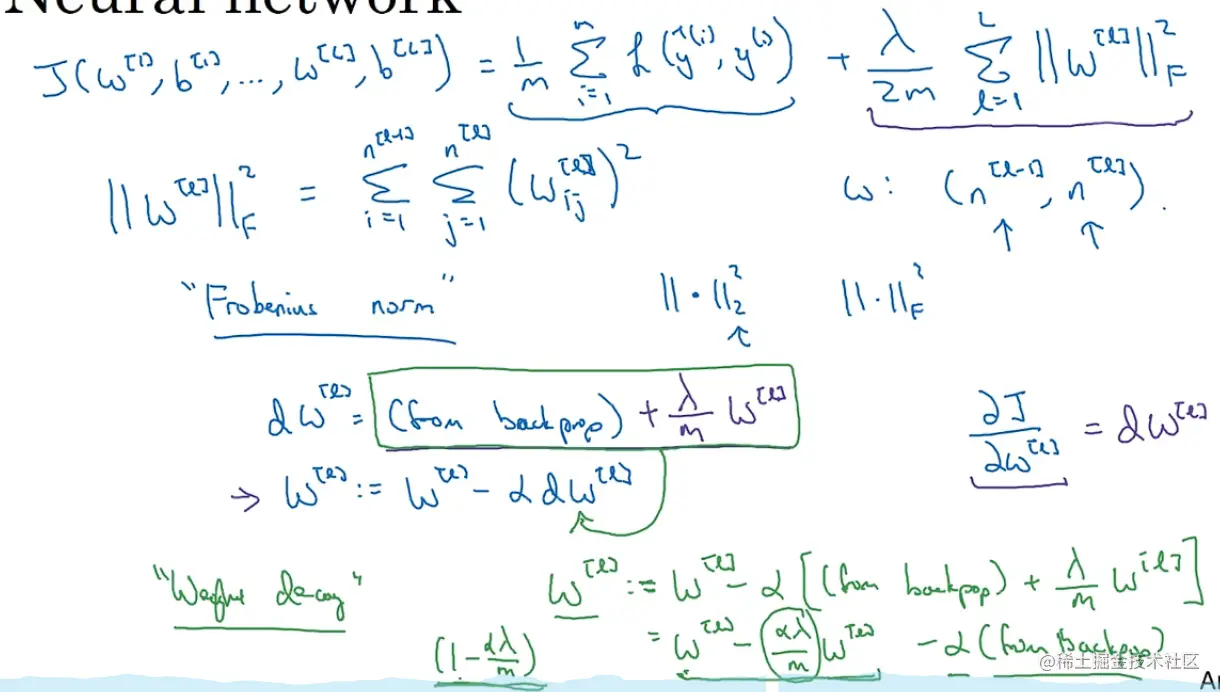 Neural network
J(w^[1], b^[1], ..., w^[L], b^[L]) = 1/m Σ_{i=1}^{m} L(ŷ^(i), y^(i)) + λ/2m Σ_{l=1}^{L} ||w^[l]||_F^2
||w^[l]||_F^2 = Σ_{i=1}^{n^[l-1]} Σ_{j=1}^{n^[l]} (w_ij^[l])^2 w: (n^[l-1], n^[l]).
"Frobenius norm" ||·||_2^2 ||·||_F^2
dw^[l] = (from backprop) + λ/m w^[l] ∂J/∂w^[l] = dw^[l]
→ w^[l] := w^[l] - α dw^[l]
"Weight decay" w^[l] := w^[l] - α [(from backpop) + λ/m w^[l]]
(1 - αλ/m) = w^[l] - αλ/m w^[l] - α (from backprop)
@稀土掘金技术社区